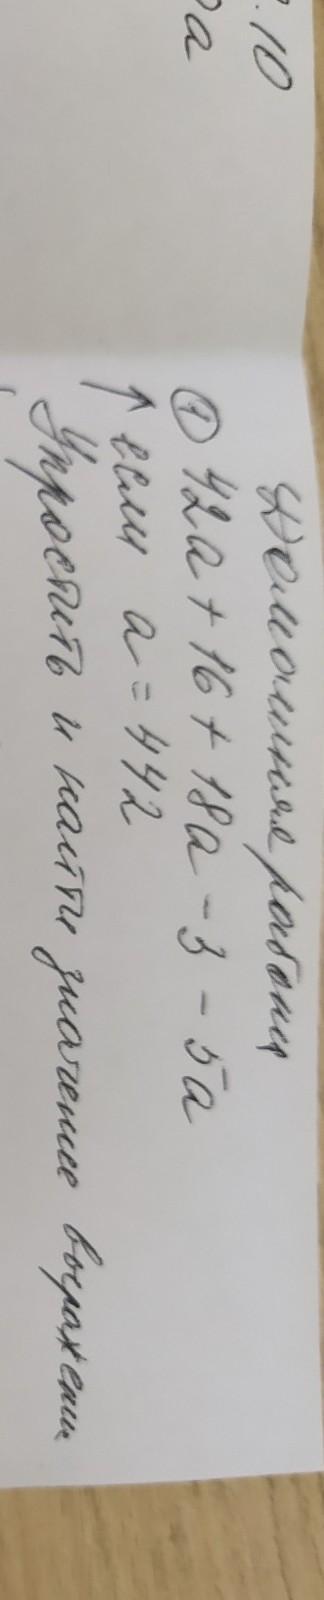 .10
а
Домашняя работа
① 42а + 16 + 18а - 3 - 5а
↑ если а = 442
Упростить и найти значение выражени